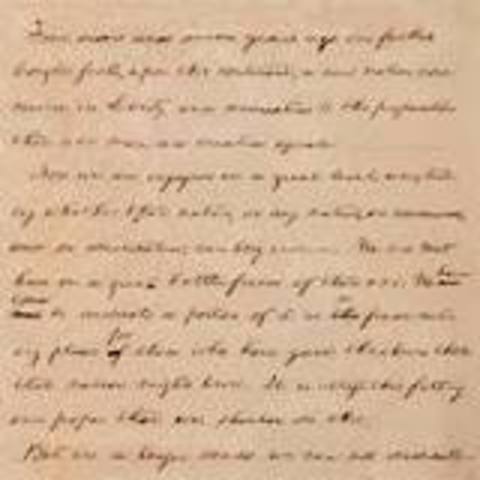 Four score and seven years ago our fathers
brought forth, upon this continent, a new nation, con-
ceived in Liberty, and dedicated to the proposition
that all men are created equal.
Now we are engaged in a great civil war, test-
ing whether that nation, or any nation, so conceived,
and so dedicated, can long endure. We are met
here on a great battlefield of that war. We have
come to dedicate a portion of it as a final rest-
ing place for those who here gave their lives that
that nation might live. It is altogether fitting
and proper that we should do this.
But in a larger sense we can not dedicate